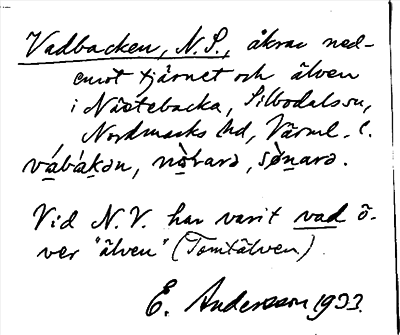 Vadbacken, N. S., åkrar ned-
emot tjärnet och älven
i Nästebacka, Silbodals sn,
Nordmarks hd, Värml. l.
vábákən, nòrarə, sònarə.
Vid N. V. har varit vad ö-
ver "älven" (Tomtälven).
E. Andersson 1933.